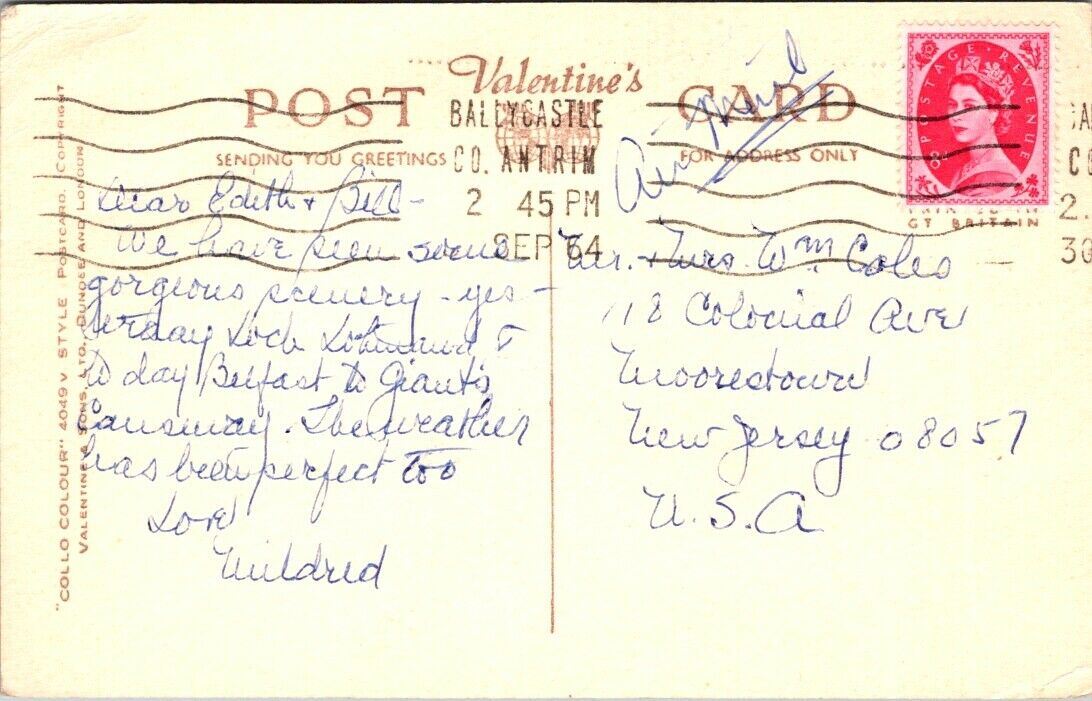 Valentine's
POST CARD
SENDING YOU GREETINGS
FOR ADDRESS ONLY
Air Mail
BALLYCASTLE
CO. ANTRIM
2 45 PM
SEP 64
POSTAGE REVENUE
8D
GT BRITAIN
2
30
Dear Edith & Bill -
We have seen some
gorgeous scenery - yes -
terday Loch Lohmand &
to day Belfast to Giant's
Causeway. The weather
has been perfect too
Love
Mildred
Mr. & Mrs. Wm. Coles
118 Colonial Ave
Moorestown
New Jersey 08057
U. S. A
"COLLO COLOUR" 4049V STYLE POSTCARD. COPYRIGHT
VALENTINE & SONS, LTD., DUNDEE AND LONDON